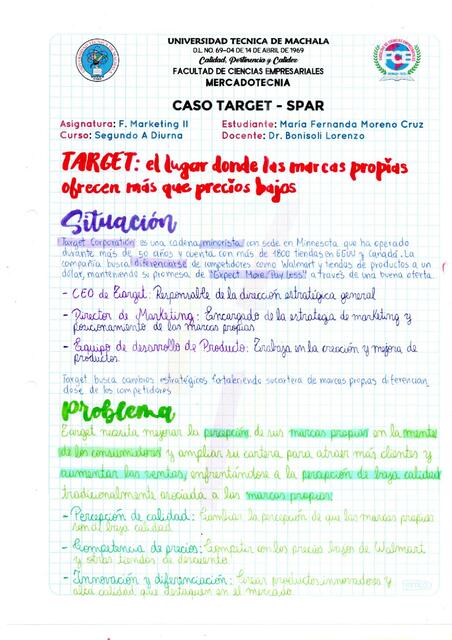 UNIVERSIDAD TECNICA DE MACHALA
D.L. NO. 69-04 DE 14 DE ABRIL DE 1969
Calidad, Pertinencia y Calidez
FACULTAD DE CIENCIAS EMPRESARIALES
MERCADOTECNIA
CASO TARGET - SPAR
Asignatura: F. Marketing II
Estudiante: María Fernanda Moreno Cruz
Curso: Segundo A Diurna
Docente: Dr. Bonisoli Lorenzo
TARGET: el lugar donde las marcas propias
ofrecen más que precios bajos
Situación
Target Corporation es una cadena minorista con sede en Minnesota que ha operado
durante más de 50 años y cuenta con más de 1800 tiendas en EEUU y Canadá. La
compañía busca diferenciarse de competidores como Walmart y tiendas de productos a un
dólar, manteniendo su promesa de "Expect More, Pay Less" a través de una buena oferta.
- CEO de Target: Responsable de la dirección estratégica general
- Director de Marketing: Encargado de la estrategia de marketing y
posicionamiento de las marcas propias
- Equipo de desarrollo de Producto: Trabaja en la creación y mejora de
productos.
Target busca cambios estratégicos fortaleciendo su cartera de marcas propias diferencian
dose de los competidores
Problema
Target necesita mejorar la percepción de sus marcas propias en la mente
de los consumidores y ampliar su cartera para atraer más clientes y
aumentar las ventas, enfrentándose a la percepción de baja calidad
tradicionalmente asociada a las marcas propias.
- Percepción de calidad: Cambiar la percepción de que las marcas propias
son de baja calidad.
- Competencia de precios: Competir con los precios bajos de Walmart
y otras tiendas de descuento.
- Innovación y diferenciación: Crear productos innovadores y
alta calidad que destaquen en el mercado.